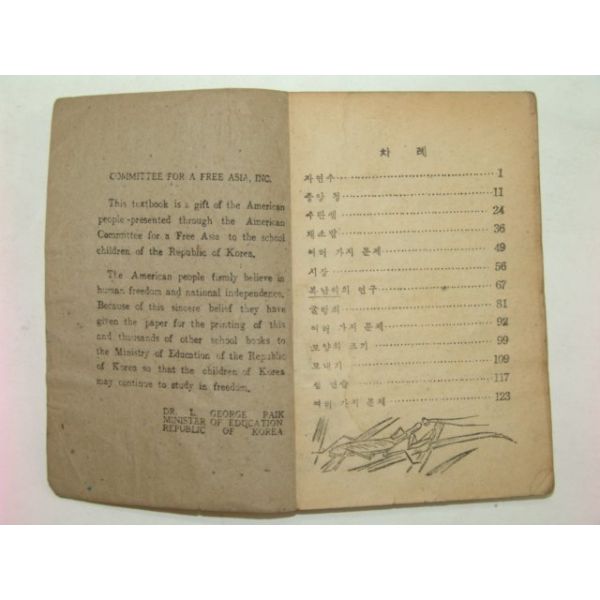 COMMITTEE FOR A FREE ASIA, INC.
This textbook is a gift of the American
people presented through the American
Committee for a Free Asia to the school
children of the Republic of Korea.
The American people firmly believe in
human freedom and national independence.
Because of this sincere belief they have
given the paper for the printing of this
and thousands of other school books to
the Ministry of Education of the Republic
of Korea so that the children of Korea
may continue to study in freedom.
DR. L. GEORGE PAIK
MINISTER OF EDUCATION
REPUBLIC OF KOREA
차 례
자연수 1
중앙 청 11
주판셈 24
채소밭 36
여러 가지 문제 49
시장 56
복남이의 연구 67
굴렁쇠 81
여러 가지 문제 92
모양의 크기 99
모내기 109
셈 연습 117
여러 가지 문제 123